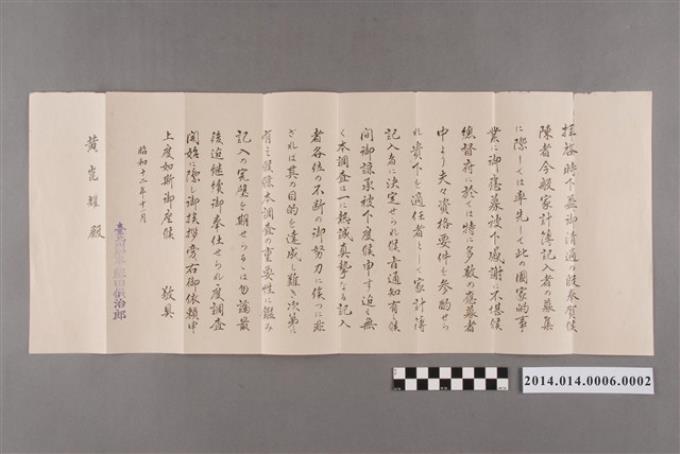 拝啓時下益御清適の段奉賀候
陳者今般家計簿記入者の募集
に際しては率先して此の国家的事
業に御應募被下感謝に不堪候
總督府に於ては特に多数の應募者
中より夫々資格要件を参酌せら
れ貴下を適任者として家計簿
記入者に決定せられ候旨通知有之候
間御諒承被下度候申す迄も無
く本調査は一に熱誠真摯なる記入
者各位の不断の御努力に俟つに非
ざれば其の目的を達成し難き次第に
有之候條本調査の重要性に鑑み
記入の完璧を期せらるゝは勿論最
後迄継続御奉仕せられ度調査
開始に際し御挨拶旁右御依頼申
上度如斯御座候 敬具
昭和十二年十一月
治郎
黄 崑 耀 殿
2014.014.0006.0002